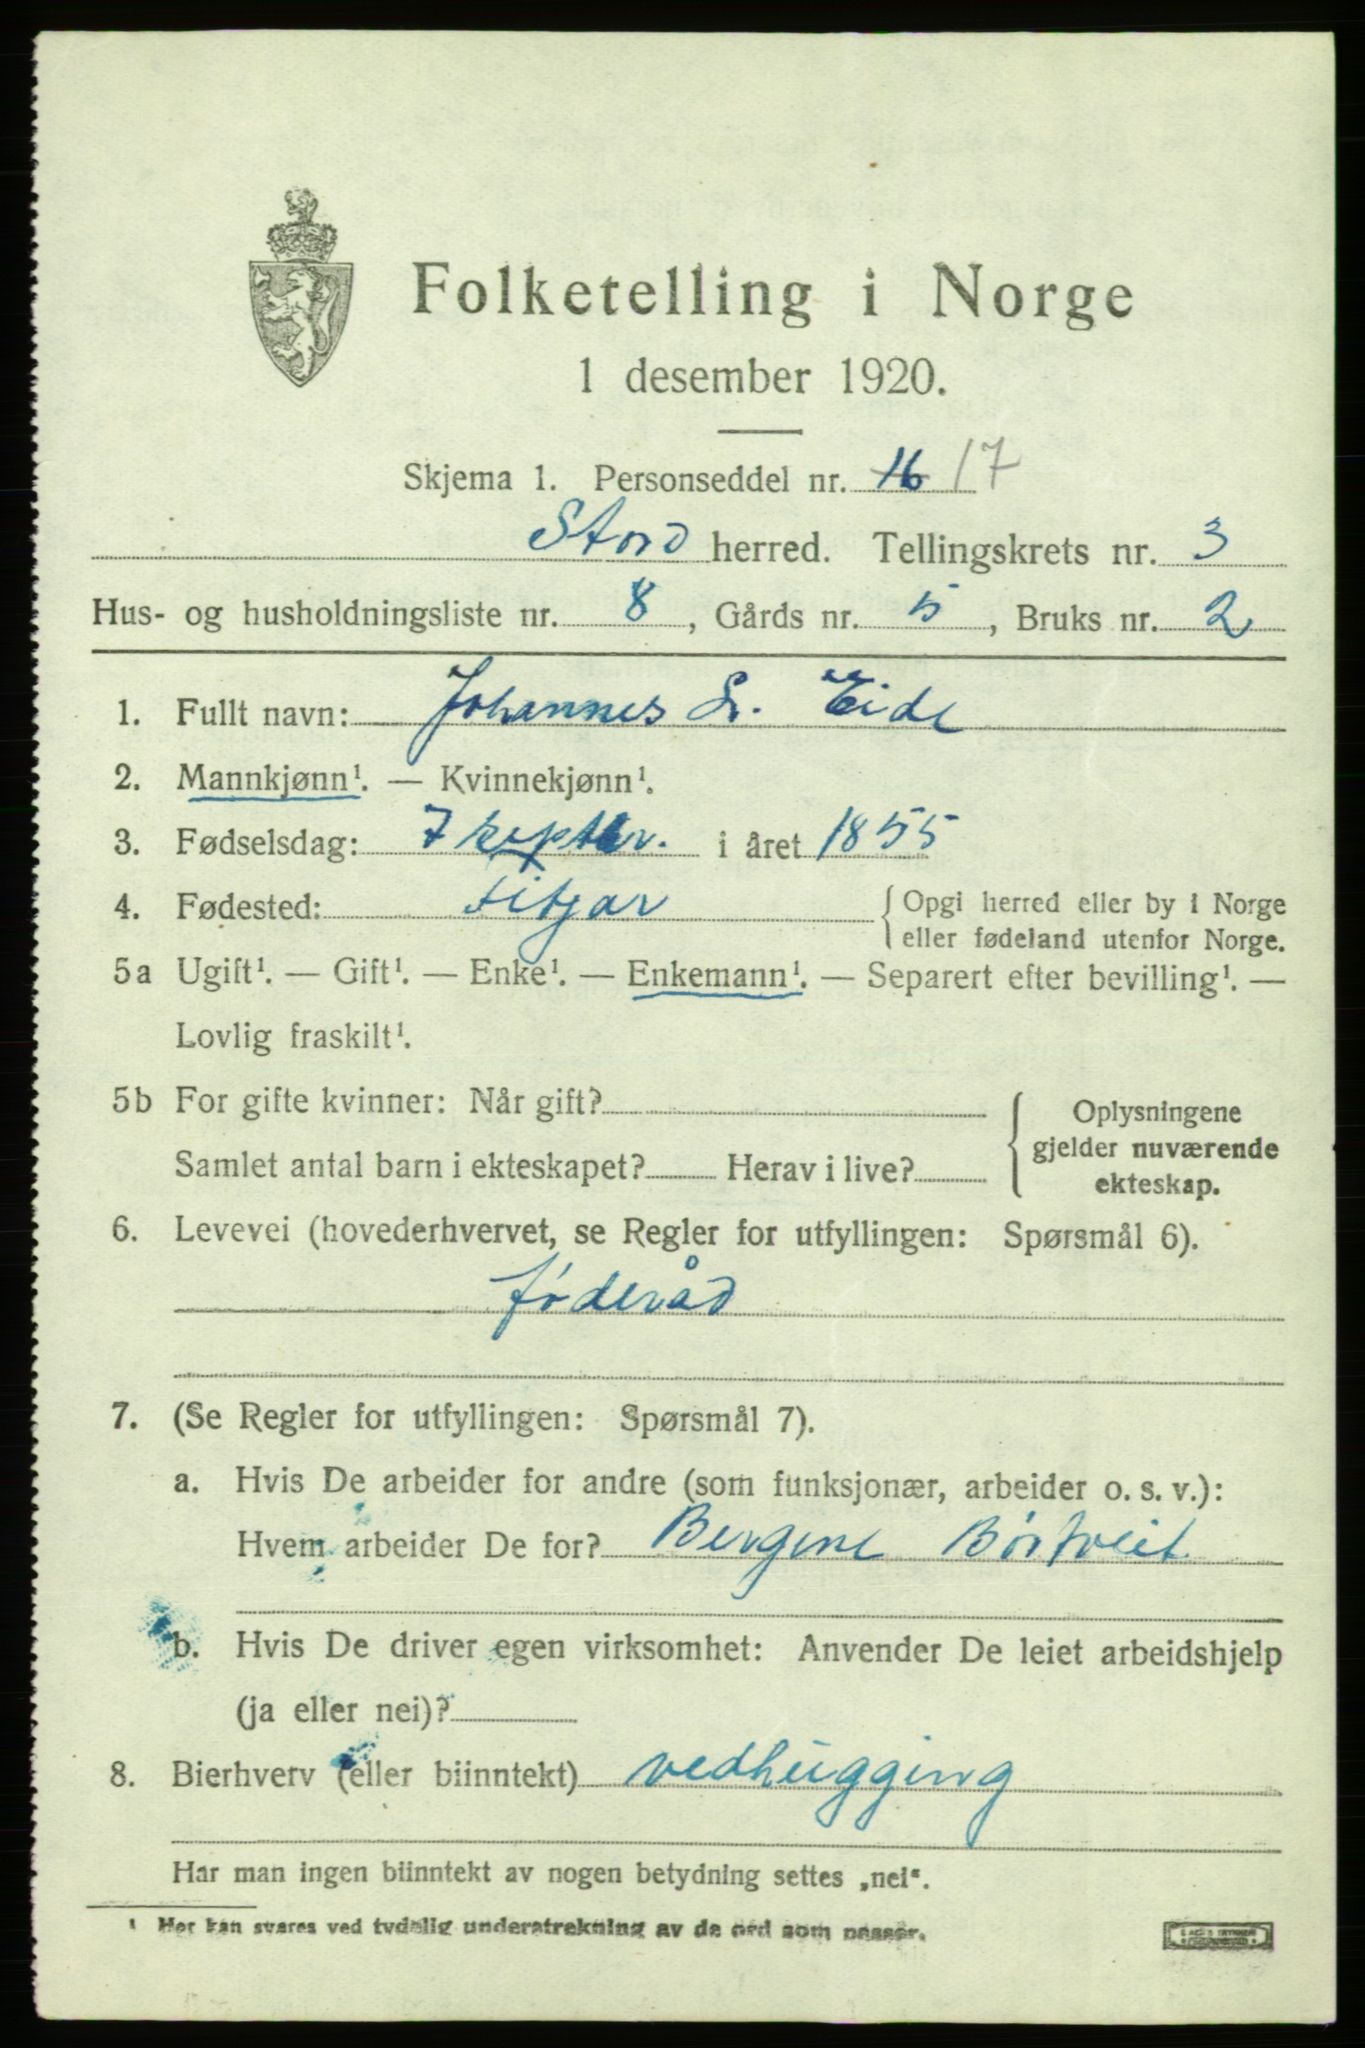 Folketelling i Norge
1 desember 1920.
Skjema 1. Personseddel nr. 16 17
Stord herred. Tellingskrets nr. 3
Hus- og husholdningsliste nr. 8, Gårds nr. 5, Bruks nr. 2
1. Fullt navn: Johannes L. Eide
2. Mannkjønn¹. — Kvinnekjønn¹.
3. Fødselsdag: 7 septbr. i året 1855
4. Fødested: Fitjar { Opgi herred eller by i Norge
eller fødeland utenfor Norge.
5a Ugift¹. — Gift¹. — Enke¹. — Enkemann¹. — Separert efter bevilling¹. —
Lovlig fraskilt¹.
5b For gifte kvinner: Når gift?
Samlet antal barn i ekteskapet? Herav i live?
{ Oplysningene
gjelder nuværende
ekteskap.
6. Levevei (hovederhvervet, se Regler for utfyllingen: Spørsmål 6).
føderåd
7. (Se Regler for utfyllingen: Spørsmål 7).
a. Hvis De arbeider for andre (som funksjonær, arbeider o. s. v.):
Hvem arbeider De for? Bergene Børtveit
b. Hvis De driver egen virksomhet: Anvender De leiet arbeidshjelp
(ja eller nei)?
8. Bierhverv (eller biinntekt) vedhugging
Har man ingen biinntekt av nogen betydning settes „nei“.
¹ Her kan svares ved tydelig understrekning av de ord som passer.